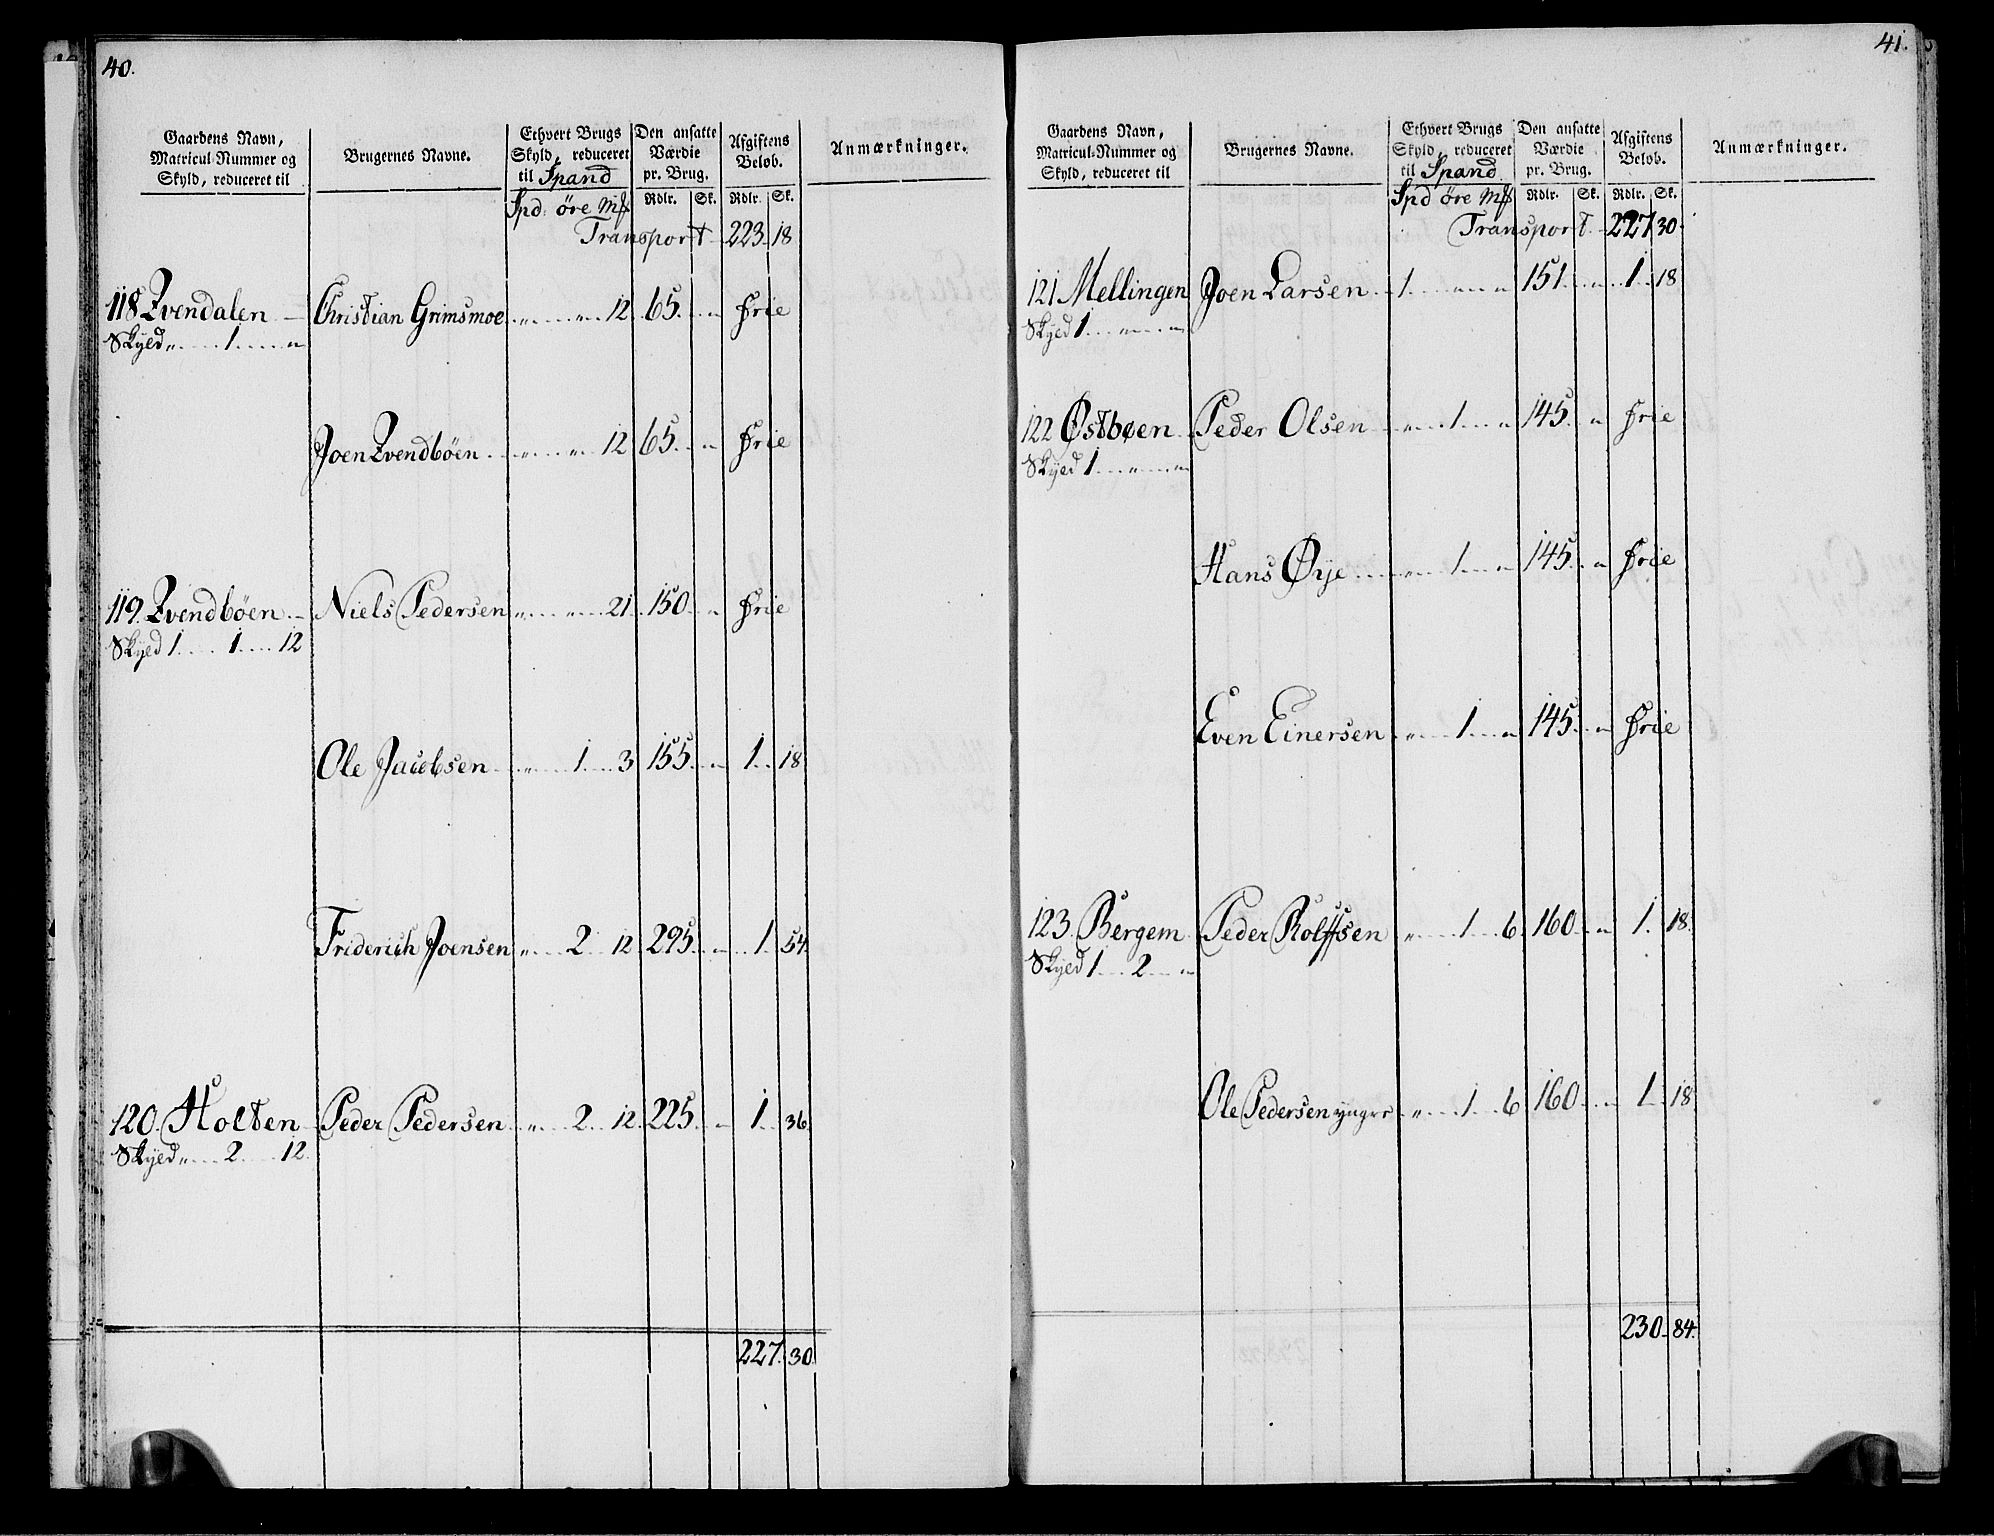 40.
Gaardens Navn, Matricul-Nummer og Skyld, reduceret til
Brugernes Navne.
Ethvert Brugs Skyld, reduceret til Spand
Den ansatte Værdie pr. Brug.
Afgiftens Beløb.
Anmærkninger.
Spd: öre Mk
Rdlr. Sk. Rdlr. Sk.
Transport 223. 18
118 Zvendalen Christian Grimsmoe „ „ 12 65. „ frie
Skyld „ 1 „
Joen Zvendböen „ „ 12 65. „ frie
119. Zvendböen Niels Pedersen „ „ 21 150 „ frie
Skyld 1 1 12
Ole Jacobsen „ 1 3 155 „ 1 18
Friderich Joensen „ 2 12 295 „ 1 54
120. Holten Peder Pedersen „ 2 12 225 „ 1 36
Skyld „ 2 12
227. 30
41.
Gaardens Navn, Matricul-Nummer og Skyld, reduceret til
Brugernes Navne.
Ethvert Brugs Skyld, reduceret til Spand
Den ansatte Værdie pr. Brug.
Afgiftens Beløb.
Anmærkninger.
Spd öre Mk
Rdlr. Sk. Rdlr. Sk.
Transport 227 30
121 Mellingen Joen Larsen 1 „ „ 151 „ 1 18
Skyld 1 „ „
122 Østbøen Peder Olsen „ 1 „ 145 „ frie
Skyld 1 „ „
Hans Øye „ 1 „ 145 „ frie
Even Einersen „ 1 „ 145 „ frie
123. Bergem Peder Rolffsen „ 1 6 160 „ 1. 18
Skyld 1 2 „
Ole Pedersen yngre „ 1 6 160 „ 1 18
230. 84